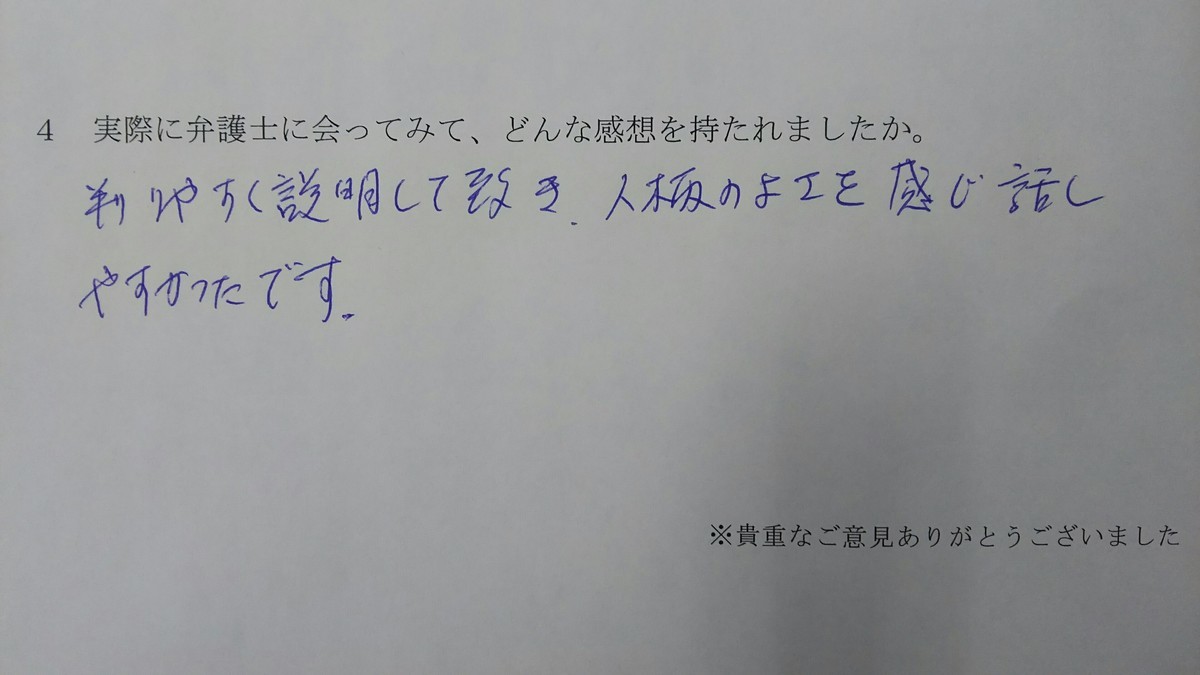 4 実際に弁護士に会ってみて、どんな感想を持たれましたか。
判りやすく説明して致き、人柄のよさを感じ話し
やすかったです。
※貴重なご意見ありがとうございました